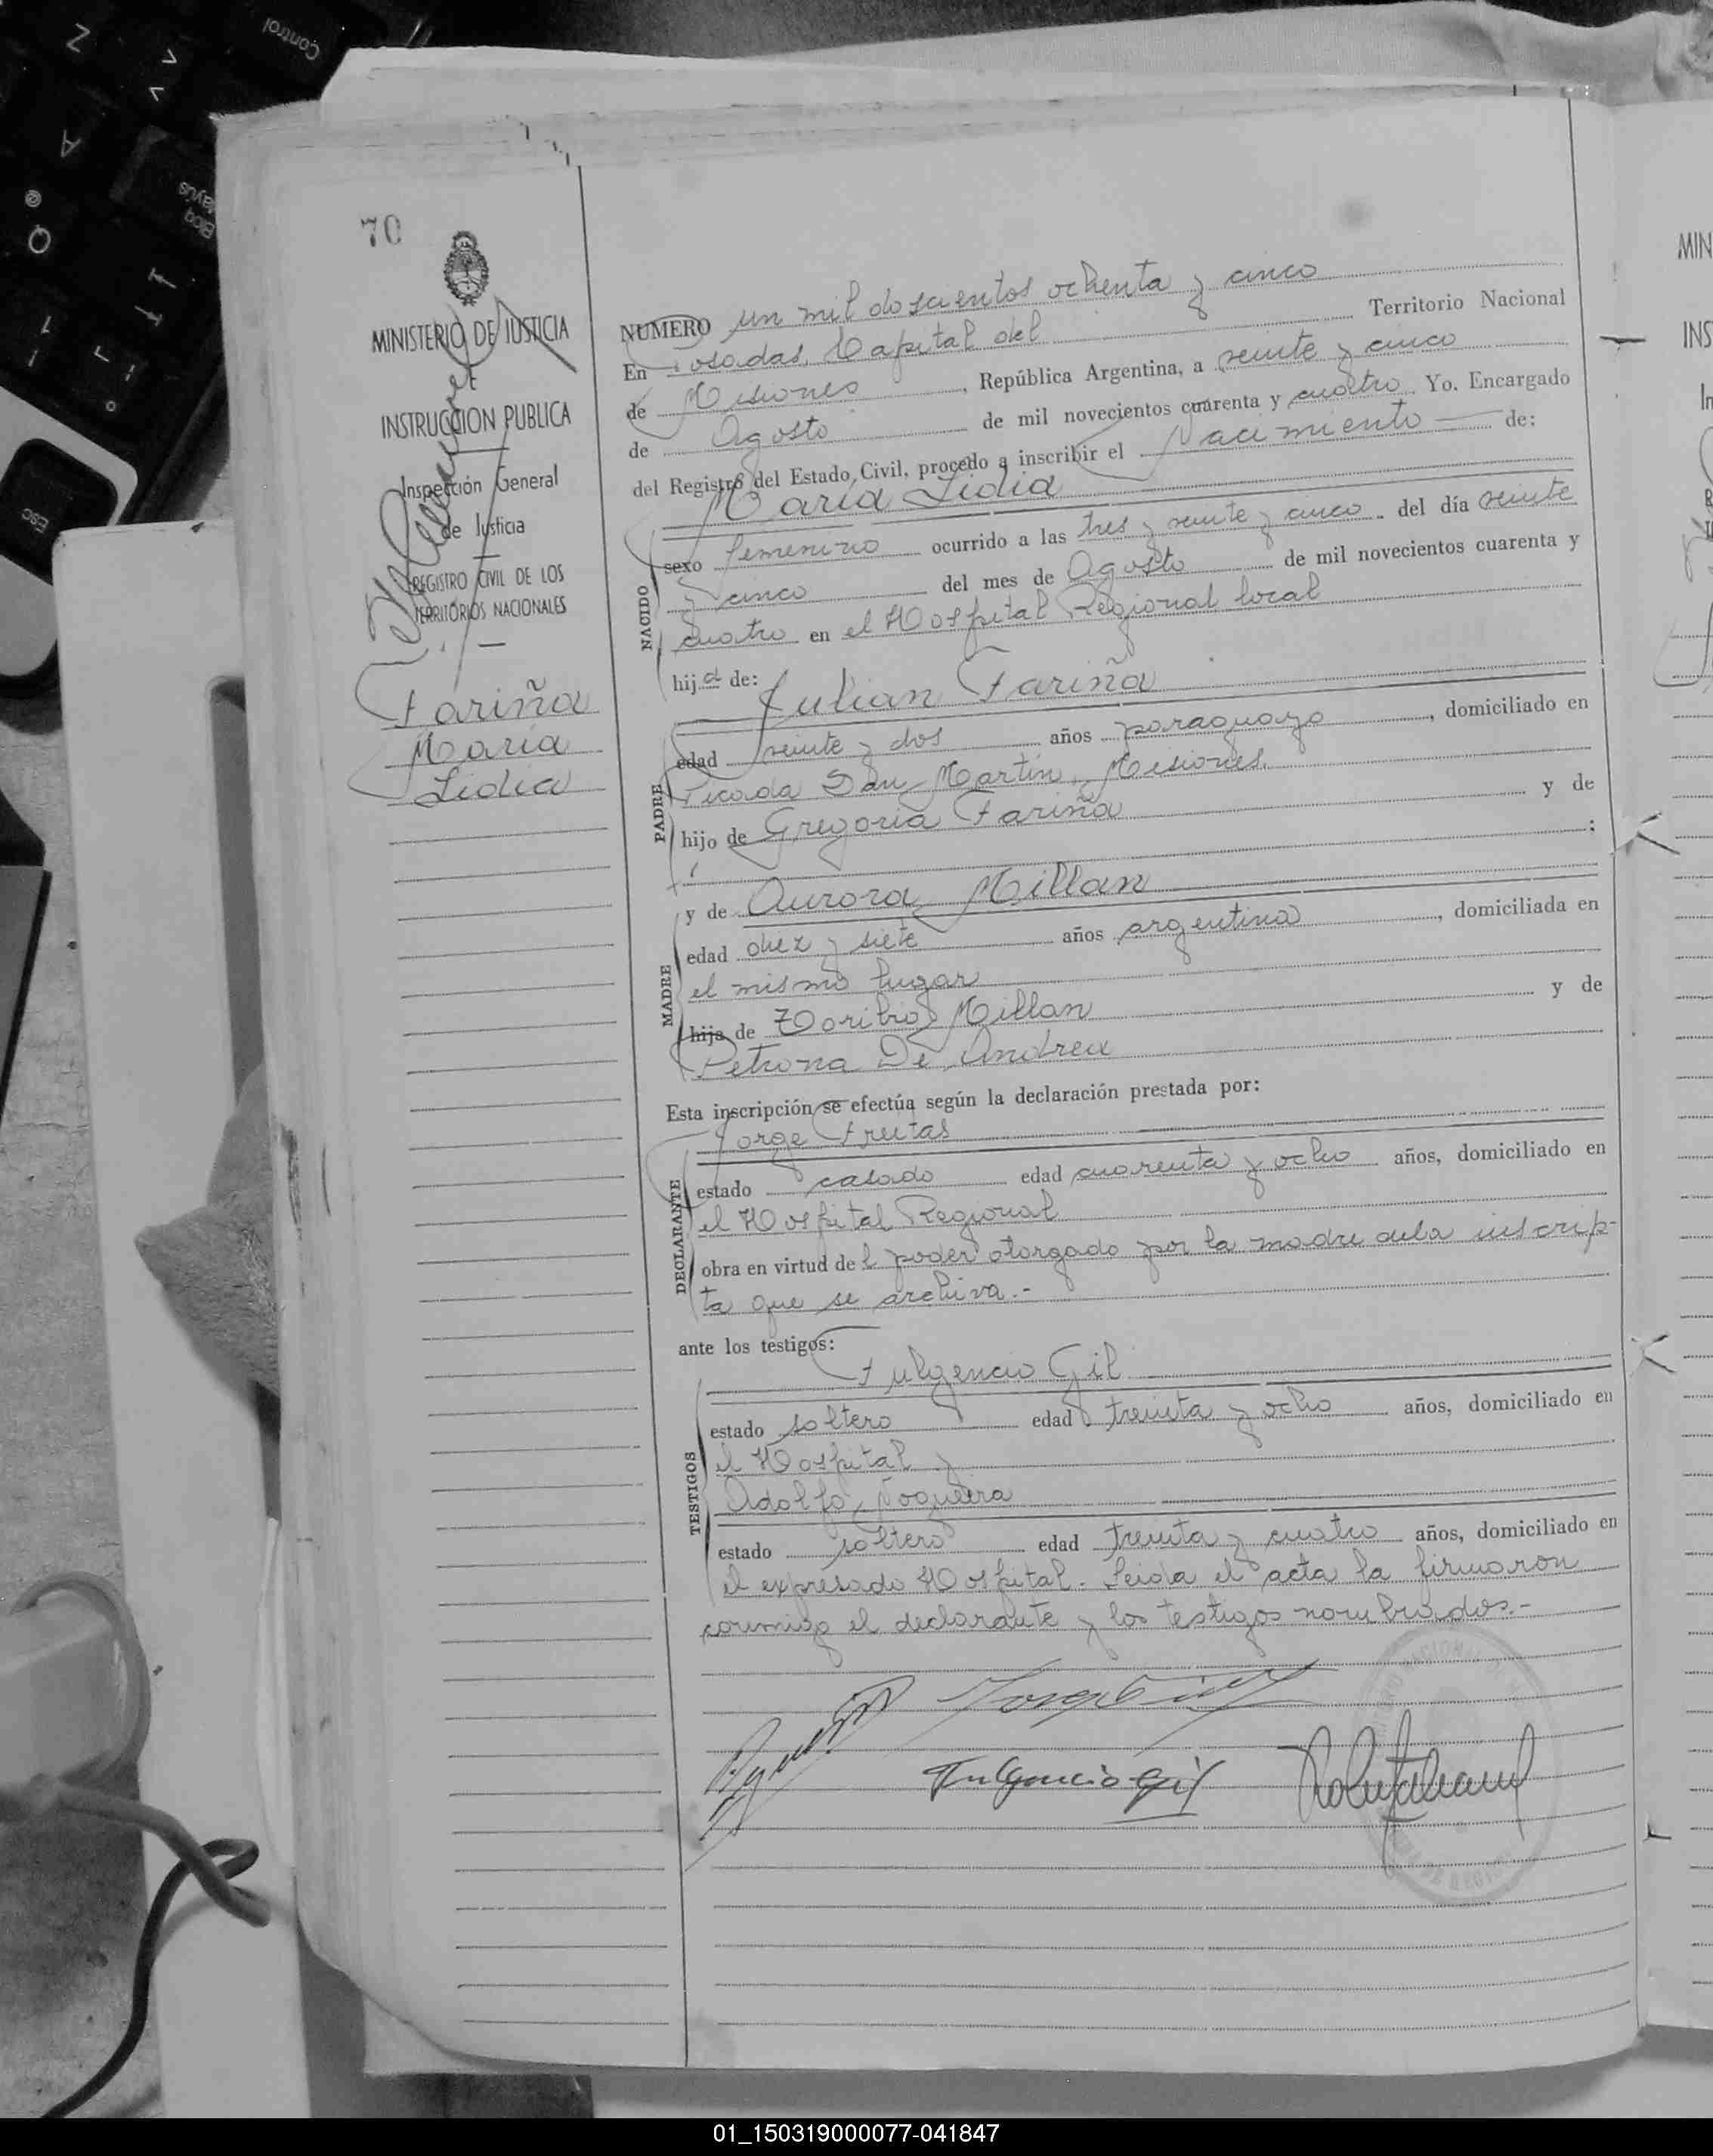 70
MINISTERIO DE JUSTICIA
E
INSTRUCCION PUBLICA
Inspección General
de Justicia
REGISTRO CIVIL DE LOS
TERRITORIOS NACIONALES
Fariña
Maria
Lidia
NUMERO un mil doscientos ochenta y cinco
En Posadas, Capital del Territorio Nacional
de Misiones, República Argentina, a veinte y cinco
de Agosto de mil novecientos cuarenta y cuatro. Yo, Encargado
del Registro del Estado Civil, procedo a inscribir el Nacimiento de:
María Lidia
NACIDO
sexo femenino ocurrido a las tres y veinte y cinco del día veinte
y cinco del mes de Agosto de mil novecientos cuarenta y
cuatro en el Hospital Regional local
hija de:
Julian Fariña
PADRE
edad veinte y dos años paraguayo, domiciliado en
Picada San Martin, Misiones.
hijo de Gregoria Fariña y de
;
y de Aurora Millan
MADRE
edad diez y siete años argentina, domiciliada en
el mismo lugar
hija de Toribio Millan y de
Petrona De Andrea
Esta inscripción se efectúa según la declaración prestada por:
Jorge Freitas
DECLARANTE
estado casado edad cuarenta y ocho años, domiciliado en
el Hospital Regional
obra en virtud del poder otorgado por la madre dela inscrip-
ta que se archiva.-
ante los testigos:
Fulgencio Gil
TESTIGOS
estado soltero edad treinta y ocho años, domiciliado en
el Hospital y
Adolfo Noguera
estado soltero edad treinta y cuatro años, domiciliado en
el expresado Hospital. Leida el acta la firmaron
conmigo el declarante y los testigos nombrados.-
Fulgencio Gil
MIN
INS
Control
Bloq
Mayús
Esc
Z
A
Q
@
01_150319000077-041847